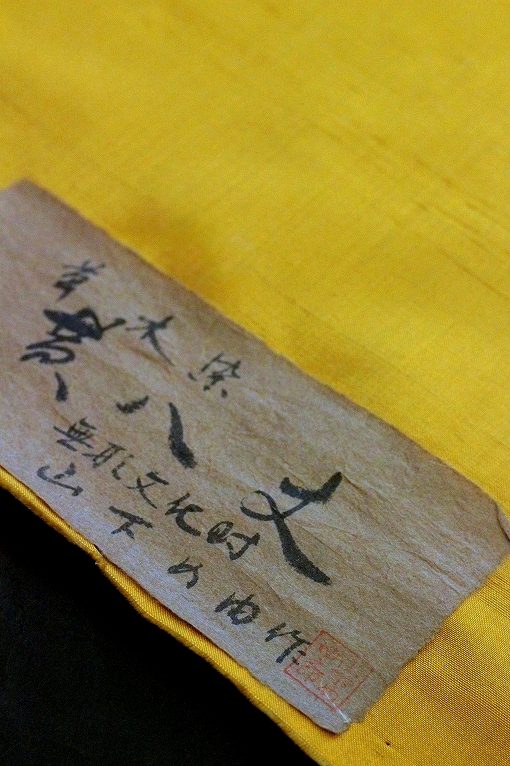 草木染
黄八丈
無形文化財
山下め由作